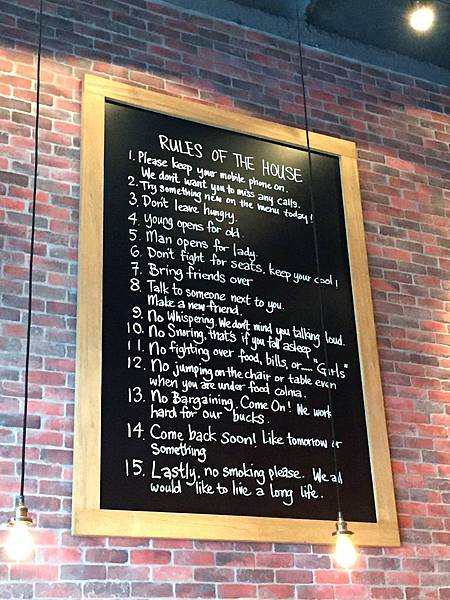 RULES OF THE HOUSE
1. Please keep your mobile phone on.
We don't want you to miss any calls.
2. Try something new on the menu today!
3. Don't leave hungry.
4. Young opens for old.
5. Man opens for lady.
6. Don't fight for seats, keep your cool!
7. Bring friends over
8. Talk to someone next to you.
Make a new friend.
9. No Whispering. We don't mind you talking loud.
10. No Snoring, that's if you fall asleep
11. No fighting over food, bills, or.... "Girls"
12. No jumping on the chair or table even
when you are under food coma.
13. No Bargaining. Come On! We work
hard for our bucks.
14. Come back soon! Like tomorrow or
Something
15. Lastly, no smoking please. We all
would like to live a long life.